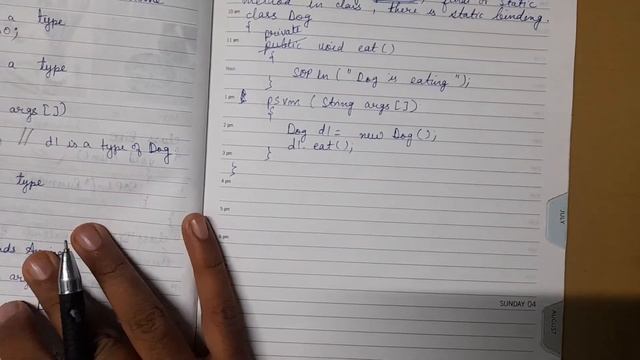 a type
a type
args[])
// d1 is a type of Dog
type
method in class, there is static binding.
10 am
class Dog
{ private
11 am
public void eat()
{
Noon
SOP ln ("Dog is eating");
}
1 pm
psvm (String args[])
{
2 pm
Dog d1 = new Dog();
d1. eat();
3 pm
}
}
4 pm
5 pm
6 pm
JULY
SUNDAY 04
AUGUST